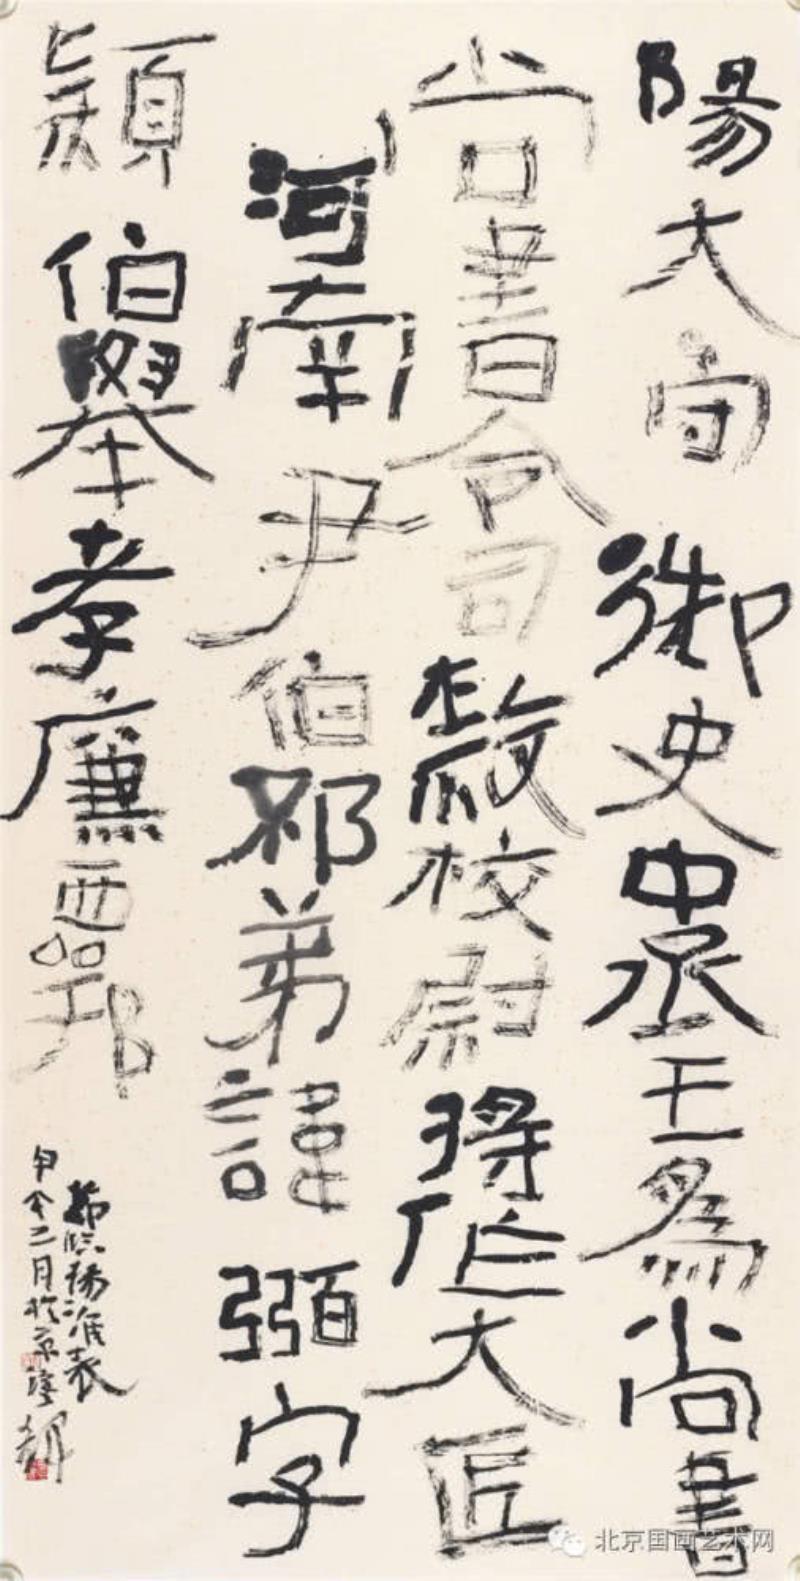 陽大守御史中丞王為尚書
尚書令司隸校尉將作大匠
河南尹伯邳弟諱弼字
穎伯舉孝廉西鄂
節臨楊淮表
甲午二月於京
北京国画艺术网